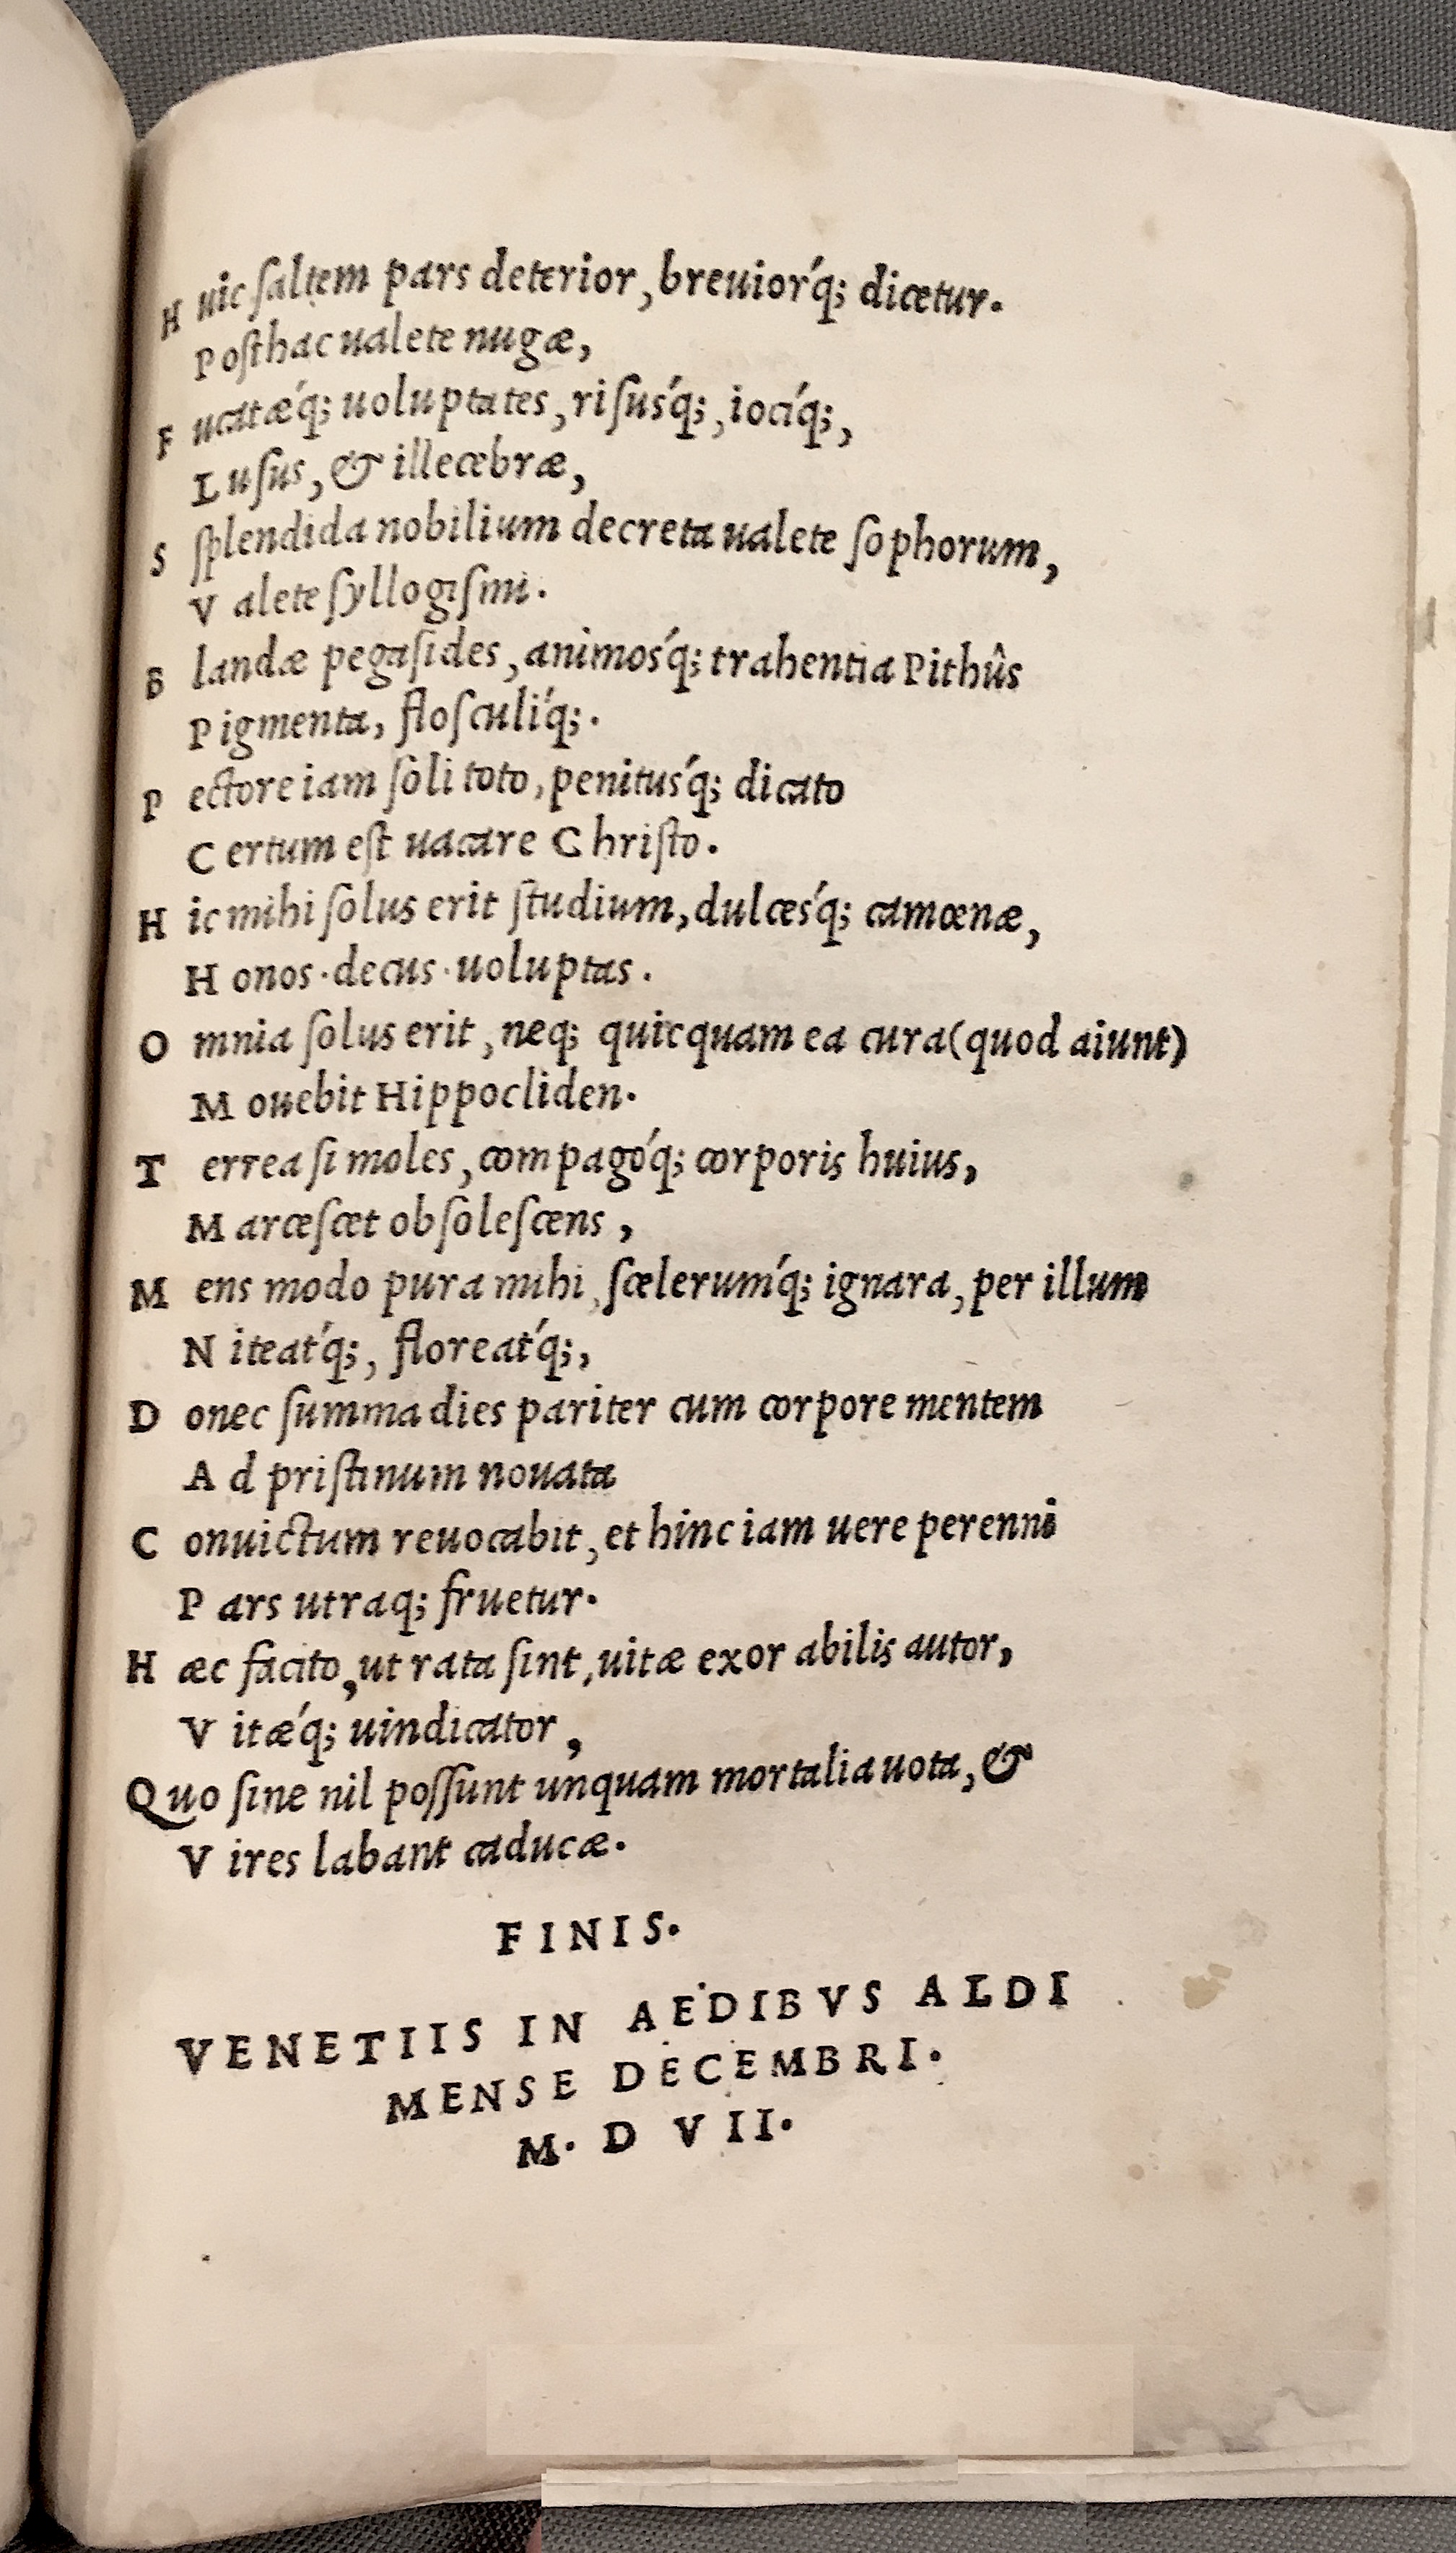 H uic ſaltem pars deterior, breuior´q; dicetur.
P oſthac ualete nugæ,
F ucatæ´q; uoluptates, riſus´q;, ioci´q;,
L uſus, & illecebræ,
S ſplendida nobilium decreta ualete ſophorum,
V alete ſyllogiſmi.
B landæ pegaſides, animos´q; trahentia Pithûs
P igmenta, floſculi´q;.
P ectore iam ſoli toto, penitus´q; dicato
C ertum eſt uacare Chriſto.
H ic mihi ſolus erit ſtudium, dulces´q; camœnæ,
H onos·decus·uoluptas.
O mnia ſolus erit, neq; quicquam ea cura (quod aiunt)
M ouebit Hippocliden.
T errea ſi moles, compago´q; corporis huius,
M arceſcet obſoleſcens,
M ens modo pura mihi, ſcelerum´q; ignara, per illum
N iteat´q;, floreat´q;,
D onec ſumma dies pariter cum corpore mentem
A d priſtinum nouata
C onuictum reuocabit, et hinc iam uere perenni
P ars utraq; fruetur.
H æc facito, ut rata ſint, uitæ exorabilis autor,
V itæ´q; uindicator,
Quo ſine nil poſſunt unquam mortalia uota, &
V ires labant caducæ.
FINIS.
VENETIIS IN AEDIBVS ALDI
MENSE DECEMBRI.
M. D VII.